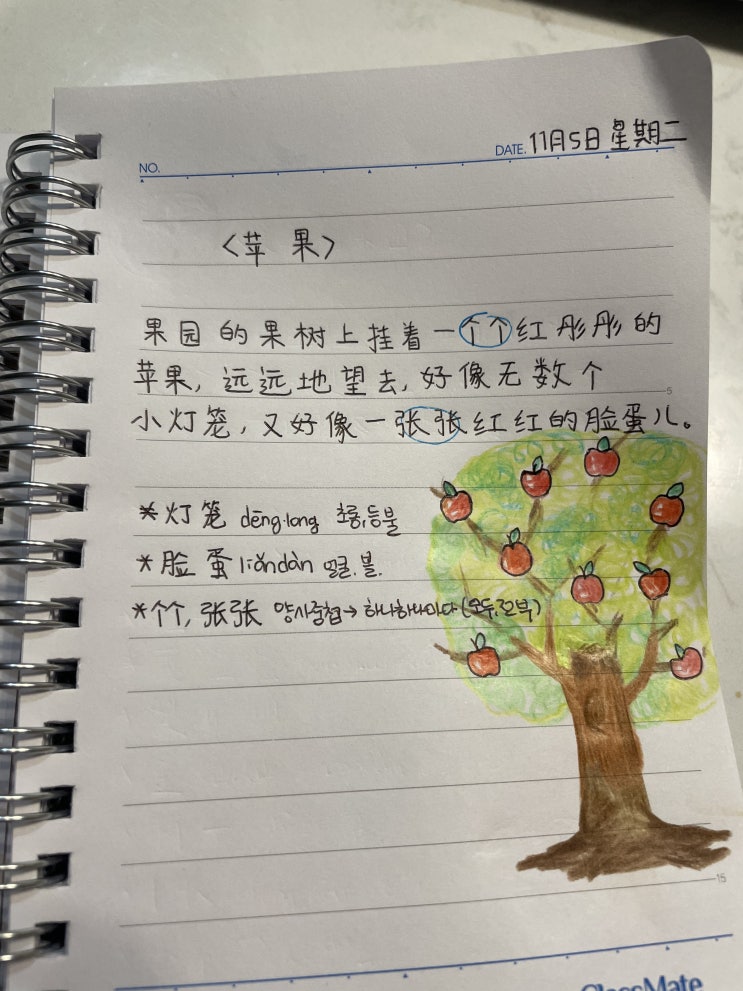 NO.
DATE. 11月5日 星期二
<苹果>
果园的果树上挂着一个个红彤彤的
苹果，远远地望去，好像无数个
5
小灯笼，又好像一张张红红的脸蛋儿。
*灯笼 dēng·long 초롱, 등불
*脸蛋 liǎndàn 얼굴. 볼.
*个个, 张张 양사중첩→ 하나하나마다 (모두, 전부)
15
ClassMate